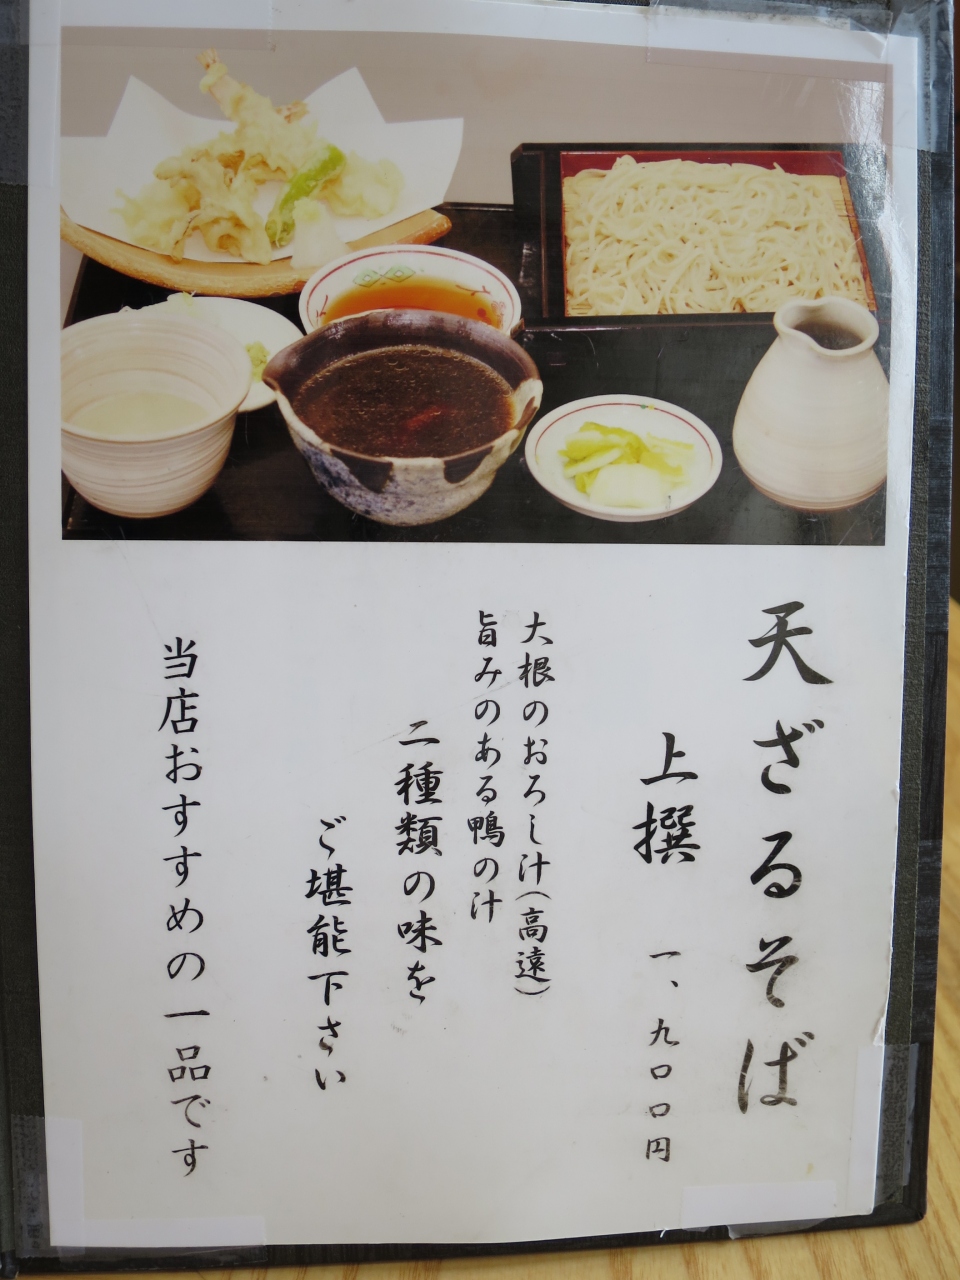 天ざるそば
上撰 一、九〇〇円
大根のおろし汁(高遠)
旨みのある鴨の汁
二種類の味を
ご堪能下さい
当店おすすめの一品です